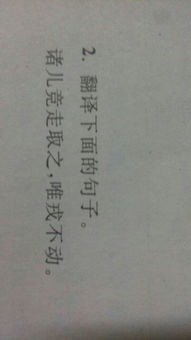 2. 翻译下面的句子。
诸儿竞走取之,唯戎不动。